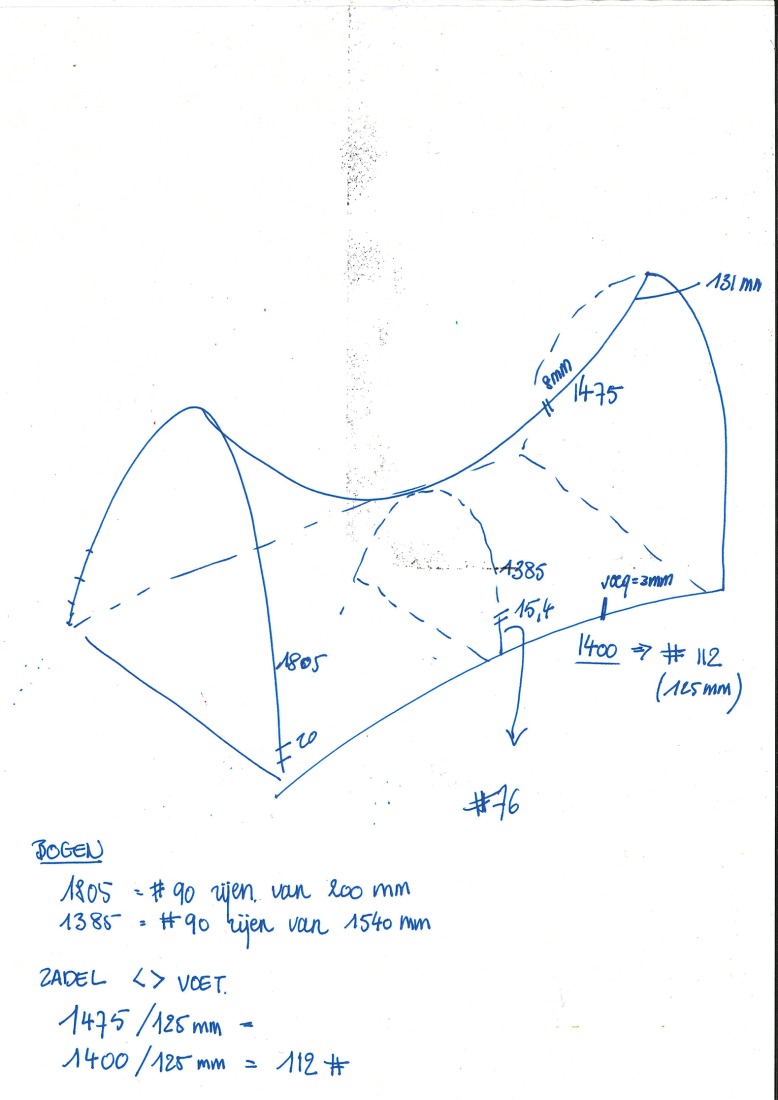 131 mm
8mm
1475
1385
voeg=3mm
15,4
1400 ⇒ # 112
(125mm)
1805
20
#76
BOGEN
1805 = # 90 rijen. van 200 mm
1385 = # 90 rijen van 1540 mm
ZADEL <> VOET.
1475 /125 mm =
1400 /125 mm = 112 #